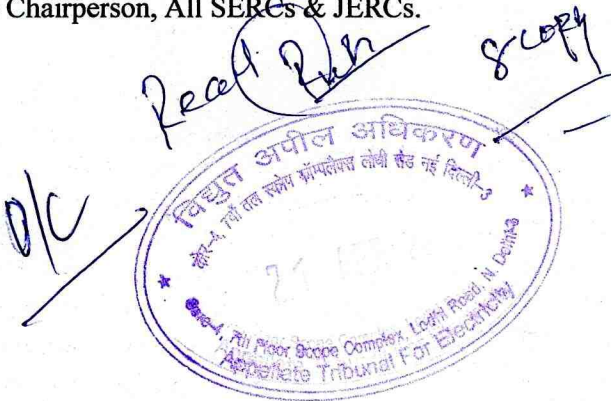 Chairperson, All SERCs & JERCs.
Recd.
8 copy
O/C
विद्युत अपील अधिकरण
कोर-4, 7वाँ तल स्कोप कॉम्पलैक्स लोधी रोड नई दिल्ली-3
21
Core-4, 7th Floor Scope Complex, Lodhi Road, N. Delhi-3
Appellate Tribunal For Electricity